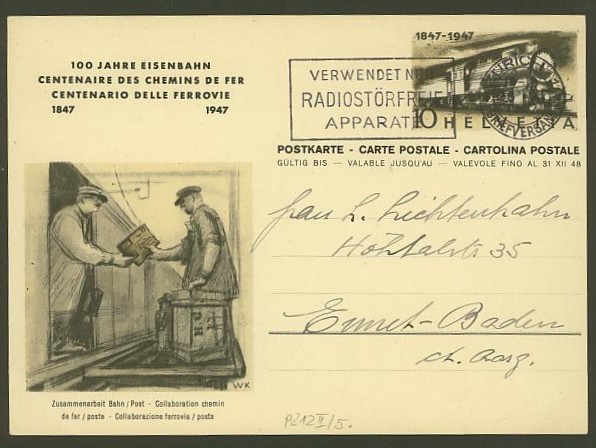 100 JAHRE EISENBAHN
CENTENAIRE DES CHEMINS DE FER
CENTENARIO DELLE FERROVIE
1847 1947
1847-1947
VERWENDET NUR
RADIOSTÖRFREIE
APPARATE
ZÜRICH
BRIEFVERSAND
10 HELVETIA
POSTKARTE - CARTE POSTALE - CARTOLINA POSTALE
GÜLTIG BIS — VALABLE JUSQU'AU — VALEVOLE FINO AL 31 XII 48
Frau L. Lichtenhahn
Höhtalstr 35
Ennet-Baden
Kt. Aarg.
WK
Zusammenarbeit Bahn / Post - Collaboration chemin
de fer / poste - Collaborazione ferrovia / posta
P212 II/5.